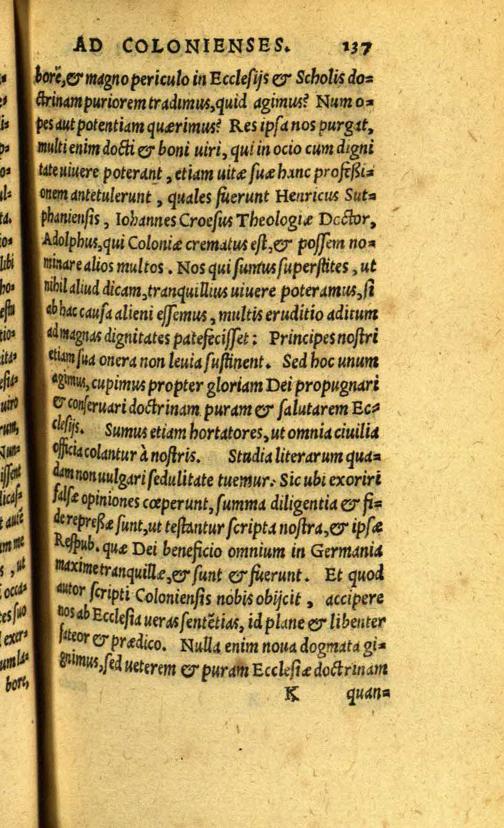 AD COLONIENSES. 137
borē, & magno periculo in Ecclesijs & Scholis do=
ctrinam puriorem tradimus, quid agimus? Num o=
pes aut potentiam quærimus? Res ipsa nos purgat,
multi enim docti & boni uiri, qui in ocio cum digni
tate uiuere poterant, etiam uitæ suæ hanc professi=
onem antetulerunt, quales fuerunt Henricus Sut=
phaniensis, Iohannes Croesus Theologiæ Doctor,
Adolphus, qui Coloniæ crematus est, & possem no=
minare alios multos. Nos qui sumus superstites, ut
nihil aliud dicam, tranquillius uiuere poteramus, si
ab hac causa alieni essemus, multis eruditio aditum
ad magnas dignitates patefecisset: Principes nostri
etiam sua onera non leuia sustinent. Sed hoc unum
agimus, cupimus propter gloriam Dei propugnari
& conseruari doctrinam puram & salutarem Ec=
clesijs. Sumus etiam hortatores, ut omnia ciuilia
officia colantur à nostris. Studia literarum qua=
dam non uulgari sedulitate tuemur. Sic ubi exoriri
falsæ opiniones cœperunt, summa diligentia & fi=
de repressæ sunt, ut testantur scripta nostra, & ipsæ
Respub. quæ Dei beneficio omnium in Germania
maxime tranquillæ, & sunt & fuerunt. Et quod
autor scripti Coloniensis nobis obijcit, accipere
nos ab Ecclesia ueras sentētias, id plane & libenter
fateor & prædico. Nulla enim noua dogmata gi=
gnimus, sed ueterem & puram Ecclesiæ doctrinam
K quan=